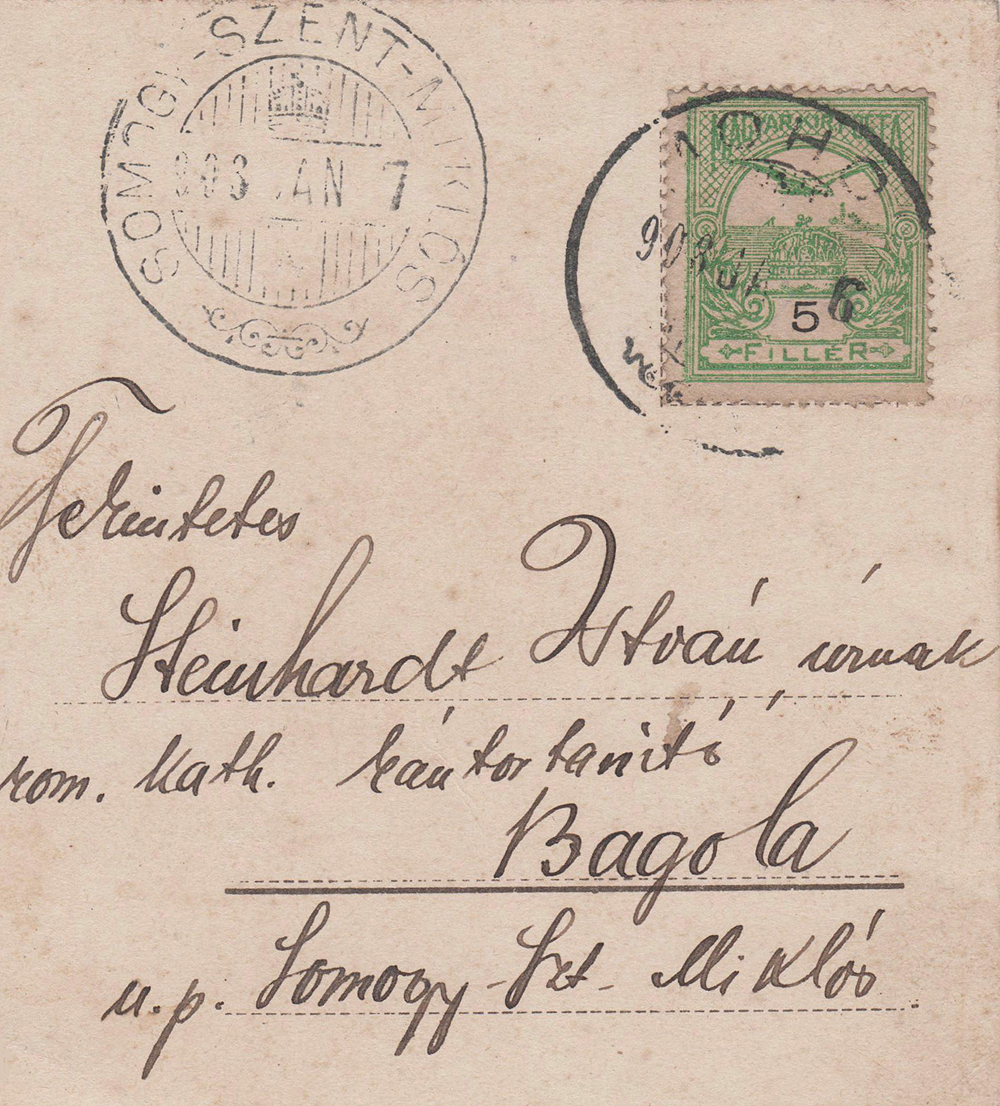 SOMOGY-SZENT-MIKLÓS
903 JAN 7
MAGYAR KIR. POSTA
903
6
5
FILLÉR
Tekintetes
Steinhardt István úrnak
rom. kath. kántortanító
Bagola
u.p. Somogy-Szt Miklós